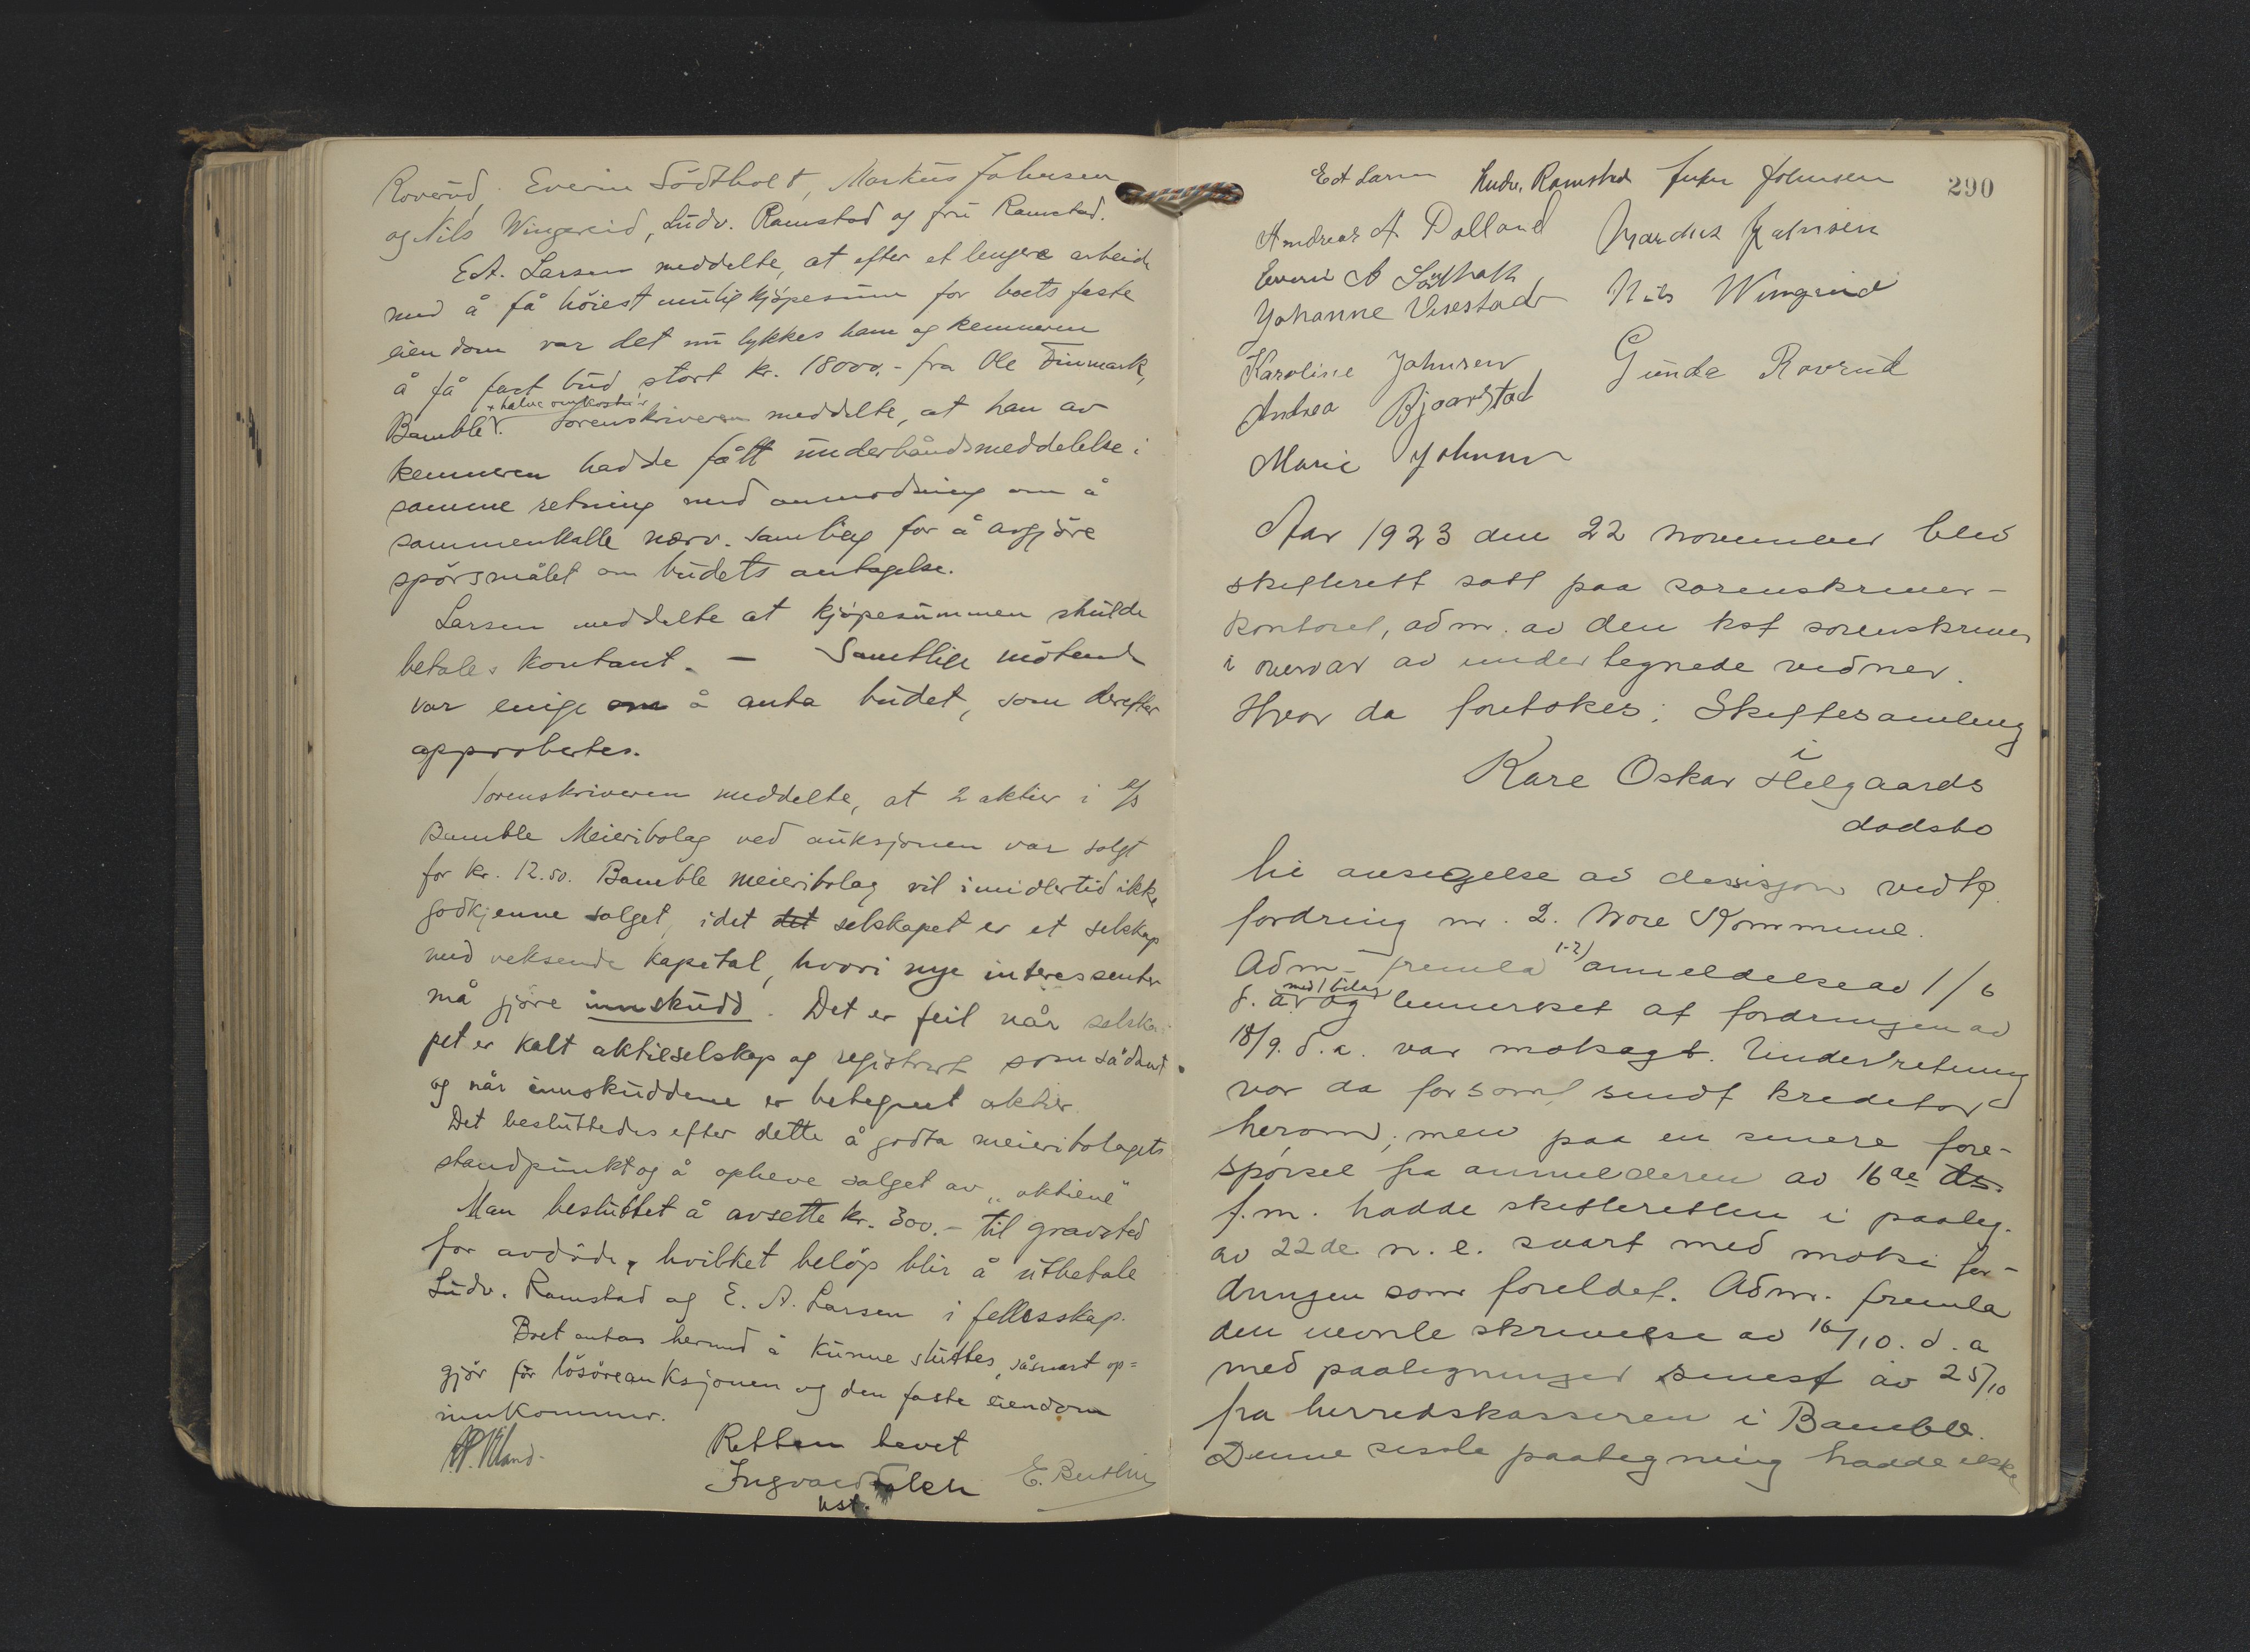 Roverud, Everin Södtholt, Markus Johnsen
og Nils Wingereid, Ludv. Ramstad og fru Ramstad.
E.A. Larsen meddelte, at efter et lengere arbeide
med å få höiest mulig kjöpesum for boets faste
eiendom var det nu lykkes ham og kemneren
å få fast bud stort kr. 18000,- fra Ole Finmark,
+ halve omkostn.
Bamble. Sorenskriveren meddelte, at han av
kemneren hadde fått underhåndsmeddelelse i
samme retning med anmodning om å
sammenkalle nærv. samling for å avgjöre
spörsmålet om budets antagelse.
Larsen meddelte at kjöpesummen skulde
betales kontant. - Samtlige mötende
var enige om å anta budet, som derefter
approbertes.
Sorenskriveren meddelte, at 2 aktier i A/S
Bamble Meieribolag ved auksjonen var solgt
for kr. 12.50. Bamble meieribolag vil imidlertid ikke
godkjenne salget, idet det selskapet er et selskap
med veksende kapital, hvori nye interessenter
må gjöre innskudd. Det er feil når selska-
pet er kalt aktieselskap og registrert som sådant
og når innskuddene er betegnet aktier.
Det besluttedes efter dette å godta meieribolagets
standpunkt og å opheve salget av "aktiene"
Man besluttet å avsette kr. 300.- til gravsted
for avdöde, hvilket belöp blir å utbetale
Ludv. Ramstad og E. A. Larsen i fellesskap.
Boet antas hermed å kunne sluttes, såsnart op=
gjör för lösöreauksjonen og den faste eiendom
innkommer.
Retten hevet
Ingvald
kst.
290
E A Larsen Ludv. Ramstad Johnsen
Andreas A Dolland Markus Johnsen
Everin A Södtholt
Johanne Visestad Nils Wingereid
Karoline Johnsen Gunda Roverud
Andrea Bjaarstad
Marie Johnsen
Aar 1923 den 22 november blev
skifterett satt paa sorenskriver-
kontoret, adm. av den kst sorenskriver
i overvær av undertegnede vidner.
Hvor da foretokes: Skiftesamling
i
Kare Oskar Helgaards
dødsbo
til avsigelse av desisjon vedk.
fordring nr. 2. Nore Kommune.
1-2)
Adm. fremla anmeldelse av 1/6
med 1 bilag
d. år og bemerket at fordringen av
18/9. d.a. var motsagt. Underretning
var da forsømt sendt kreditor
herom; men paa en senere fore-
spørsel fra anmelderen av 16de ds.
f.m. hadde skifteretten i paateg.
av 22de n. e. svart med motsi for-
dringen som foreldet. Adm. fremla
den nevnte skrivelse av 16/10. d.a
med paategninger senest av 25/10
fra herredskasseren i Bamble.
Denne siste paategning hadde ikke